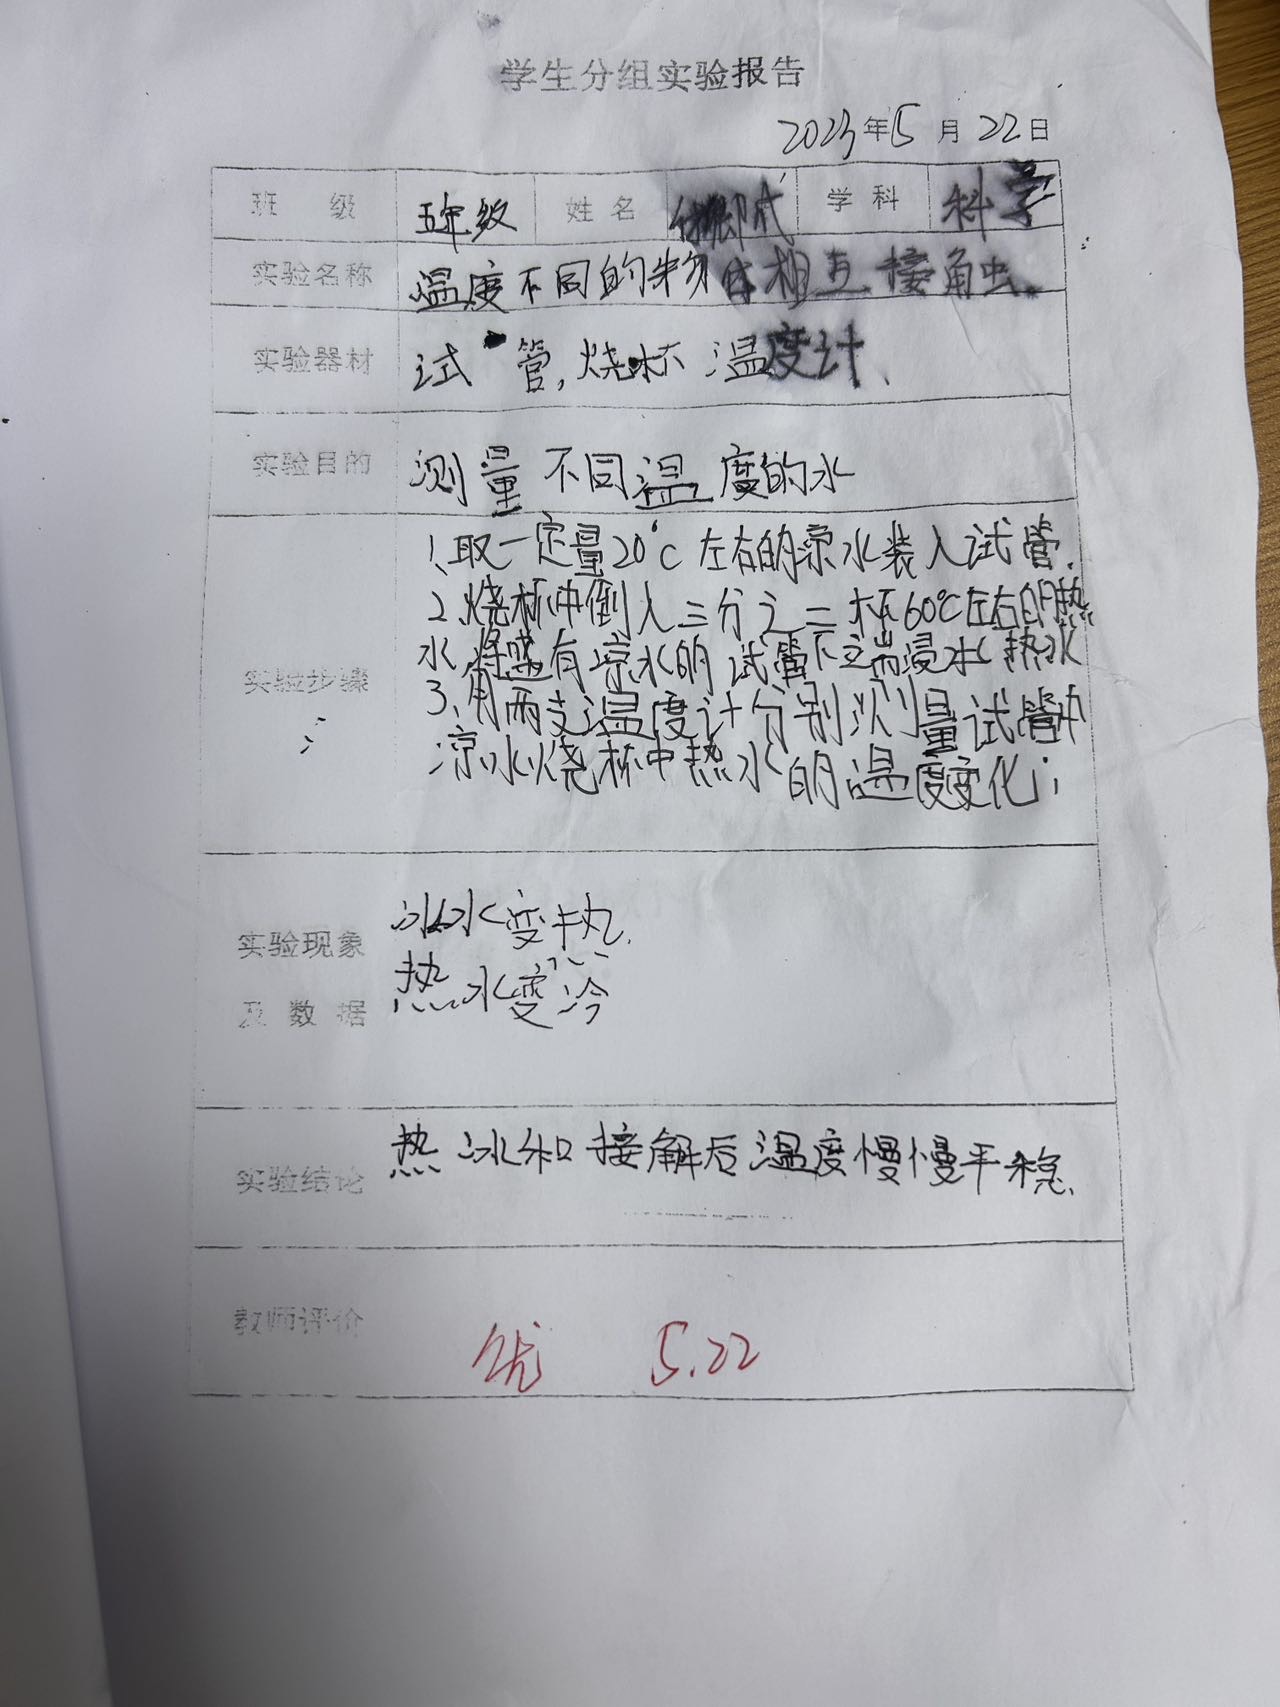 学生分组实验报告
2023年5月22日
班 级 五年级 姓名 学科 科学
实验名称 温度不同的物体相互接触.
实验器材 试管,烧杯 温度计.
实验目的 测量不同温度的水
1、取一定量20℃左右的凉水装入试管.
2、烧杯中倒入三分之二杯60℃左右的热
水,将盛有凉水的试管下端浸水热水
实验步骤
3、用两支温度计分别测量试管中
凉水烧杯中热水的温度变化;
实验现象 冰水变热.
及数据 热水变冷
实验结论 热冰和接解后温度慢慢平稳.
教师评价
优 5.22